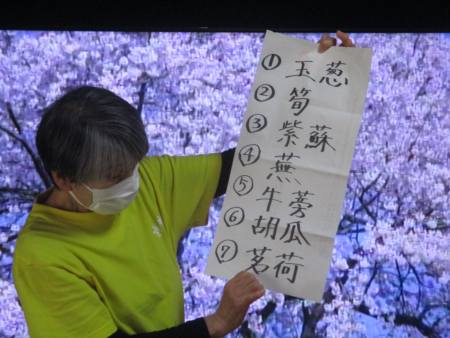 ① 玉葱
② 筍
③ 紫蘇
④ 蕪
⑤ 牛蒡
⑥ 胡瓜
⑦ 茗荷